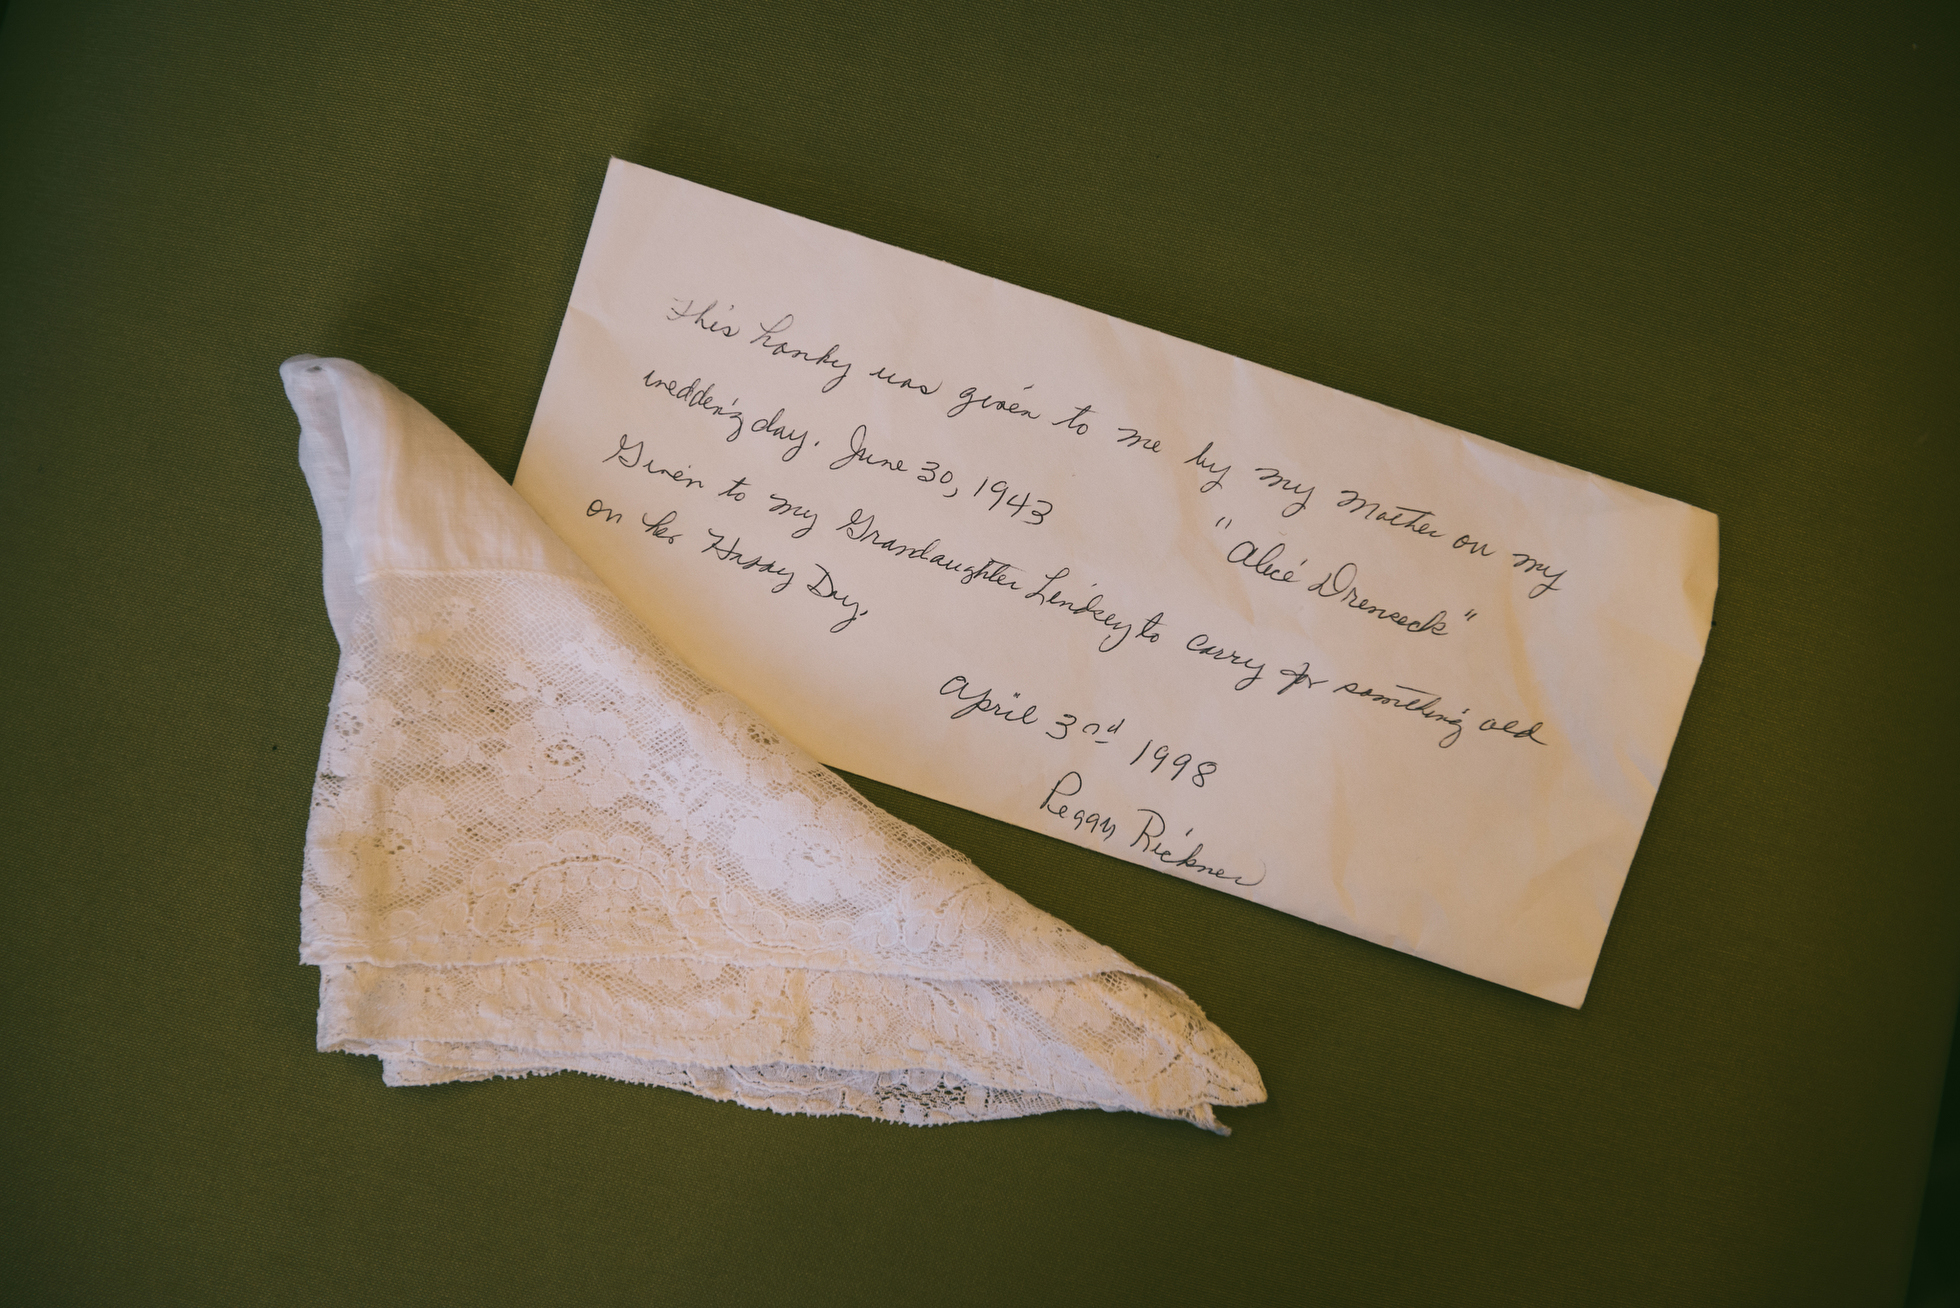 This hanky was given to me by my Mother on my
wedding day. June 30, 1943 "Alice Drenseck"
Given to my Grandaughter Lindsey to carry for something old
on her Happy Day.
April 3rd 1998
Peggy Rickner